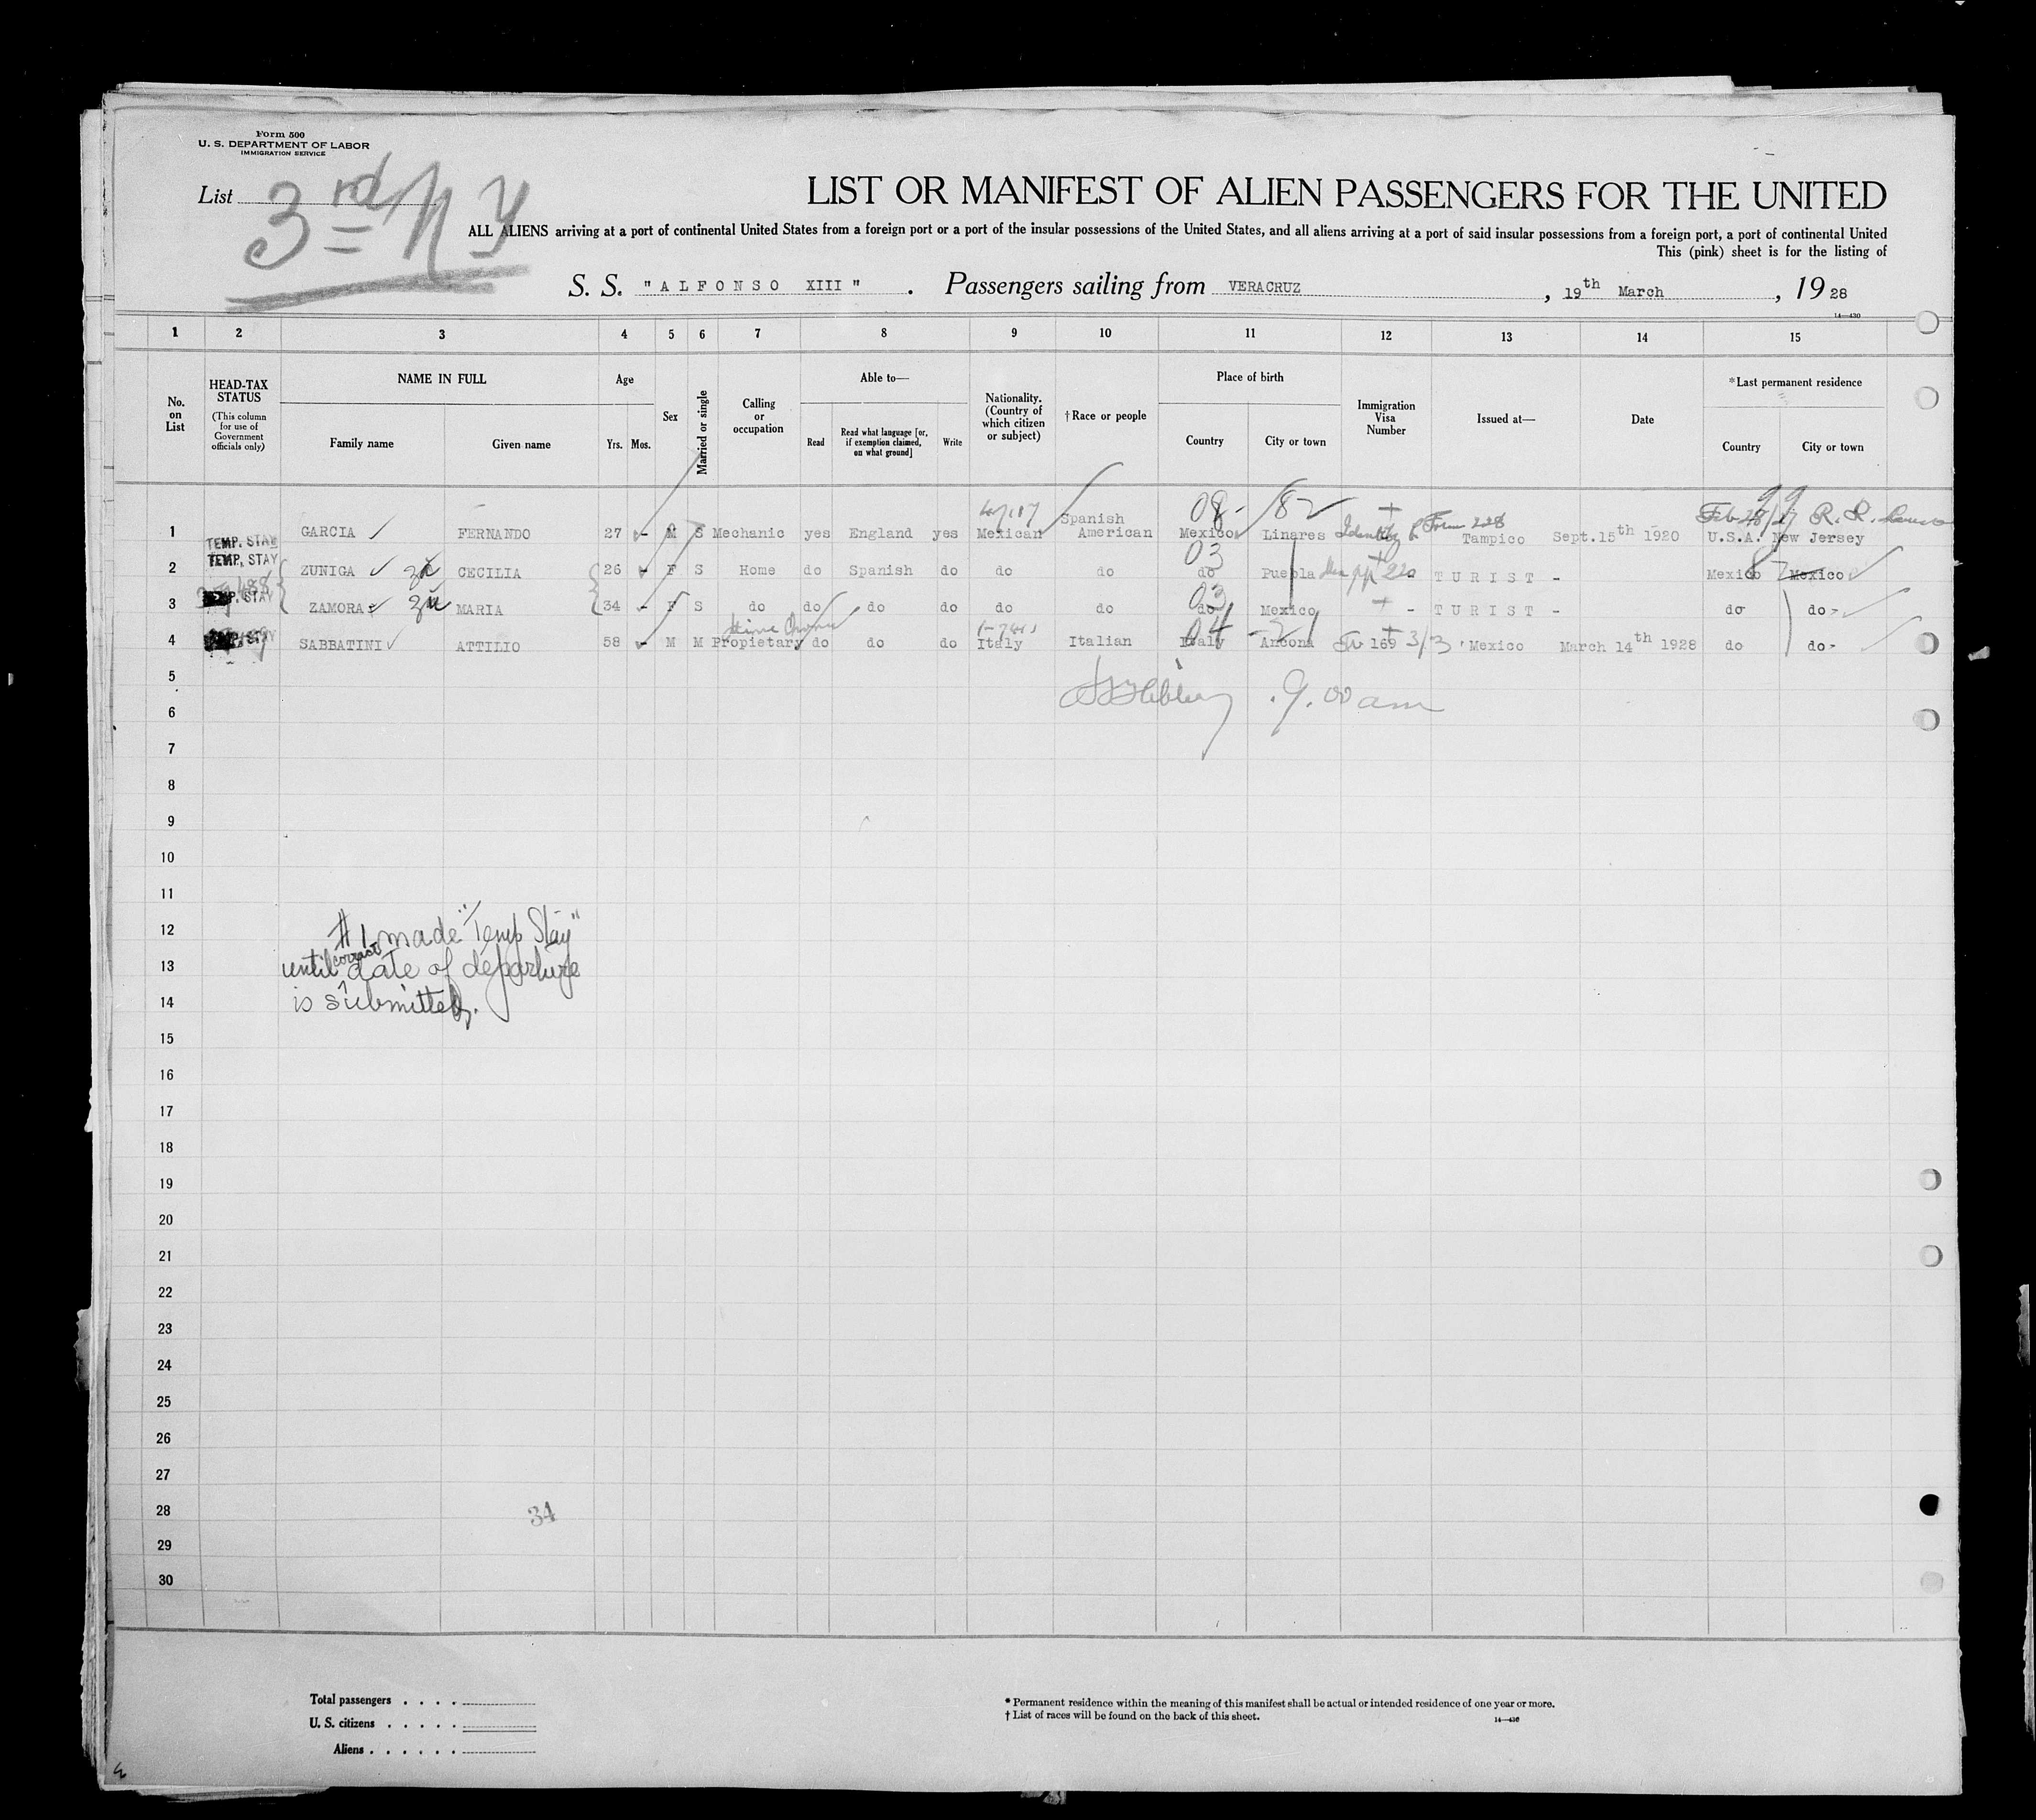 Form 500
U. S. DEPARTMENT OF LABOR
IMMIGRATION SERVICE
List 3rd N Y
LIST OR MANIFEST OF ALIEN PASSENGERS FOR THE UNITED
ALL ALIENS arriving at a port of continental United States from a foreign port or a port of the insular possessions of the United States, and all aliens arriving at a port of said insular possessions from a foreign port, a port of continental United
This (pink) sheet is for the listing of
S. S. "ALFONSO XIII". Passengers sailing from VERACRUZ, 19th March, 1928
14—430
1 2 3 4 5 6 7 8 9 10 11 12 13 14 15
No. on List
HEAD-TAX STATUS
(This column for use of Government officials only)
NAME IN FULL
Family name Given name
Age
Yrs. Mos.
Sex
Married or single
Calling or occupation
Able to—
Read Read what language [or, if exemption claimed, on what ground] Write
Nationality. (Country of which citizen or subject)
†Race or people
Place of birth
Country City or town
Immigration Visa Number
Issued at—
Date
*Last permanent residence
Country City or town
99
08- 82 Feb 28/27 R. R.
1 TEMP. STAY GARCIA FERNANDO 27 - M S Mechanic yes England yes Mexican Spanish American Mexico Linares Form 228 Tampico Sept.15th 1920 U.S.A. New Jersey
03
2 TEMP. STAY ZUNIGA CECILIA 26 - F S Home do Spanish do do do do Puebla TURIST - Mexico Mexico
03
3 TEMP. STAY ZAMORA MARIA 34 - F S do do do do do do do Mexico - TURIST - do do-
04
4 SABBATINI ATTILIO 58 - M M Propietary do do do Italy Italian Italy Ancona 169 3/3 Mexico March 14th 1928 do do-
5
9.00 am
6
7
8
9
10
11
12 #1 made "Temp Stay"
13 until correct date of departure
14 is submitted.
15
16
17
18
19
20
21
22
23
24
25
26
27
28 34
29
30
Total passengers . . . .
U. S. citizens . . . . .
Aliens . . . . . .
* Permanent residence within the meaning of this manifest shall be actual or intended residence of one year or more.
† List of races will be found on the back of this sheet.
14—430